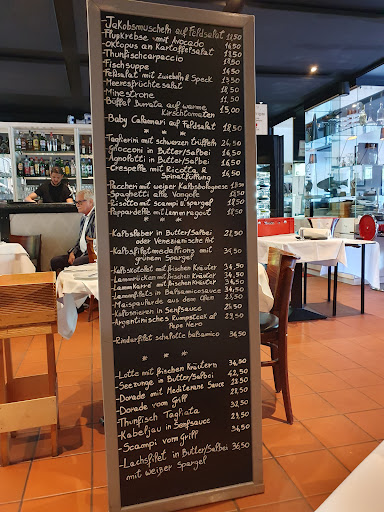 -Jakobsmuscheln auf Feldsalat 18,50
-Flußkrebse mit Avocado 16,50
-Oktopus an Kartoffelsalat 16,50
-Thunfischcarpaccio 16,50
-Fischsuppe 14,50
-Feldsalat mit Zwiebeln & Speck 13,50
-Meeresfrüchtesalat 18,50
-Minestrone 11,50
-Büffel Burrata auf warme 15,00
Kirschtomaten
-Baby Calamari auf Feldsalat 18,50
* * *
-Taglierini mit schwarzen trüffeln 24,50
-Gnocconi in Butter/Salbei 16,50
-Agnolotti in Butter/Salbei 16,50
-Crespelle mit Ricotta & 16,50
Spinatfüllung
-Paccheri mit weißer Kalbsbolognese 18,50
-Spaghetti alle Vongole 18,50
-Risotto mit scampi & spargel 18,50
-Pappardelle mit Lammragout 18,50
* * *
-Kalbsleber in Butter/Salbei 27,50
oder Venezianische Art
-Kalbsfiletmedaillons mit 34,50
grünem Spargel
-Kalbskotelett mit frischen Kräuter 34,50
-Lammrücken mit frischen Kräuter 34,50
-Lammkarré mit frischen Kräuter 34,50
-Lammfilets in Balsamicosauce 34,50
-Maispoularde aus dem Ofen
-Kalbsnieren in Senfsauce
-Argentinisches Rumpsteak al
Pepe Nero
-Rinderfilet schalotte balsamico 36,50
* * *
-Lotte mit frischen Kräutern 34,50
-Seezunge in Butter/Salbei 42,50
-Dorade mit Mediterane Sauce
-Dorade vom Grill
-Thunfisch Tagliata
-Kabeljau in Senfsauce
-Scampi vom Grill 34,50
-Lachsfilet in Butter/Salbei 36,50
mit weißer Spargel